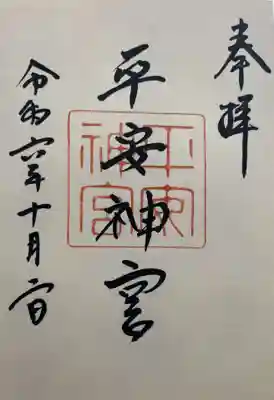 奉拝
平安神宮
令和六年十月二日
平安神宮